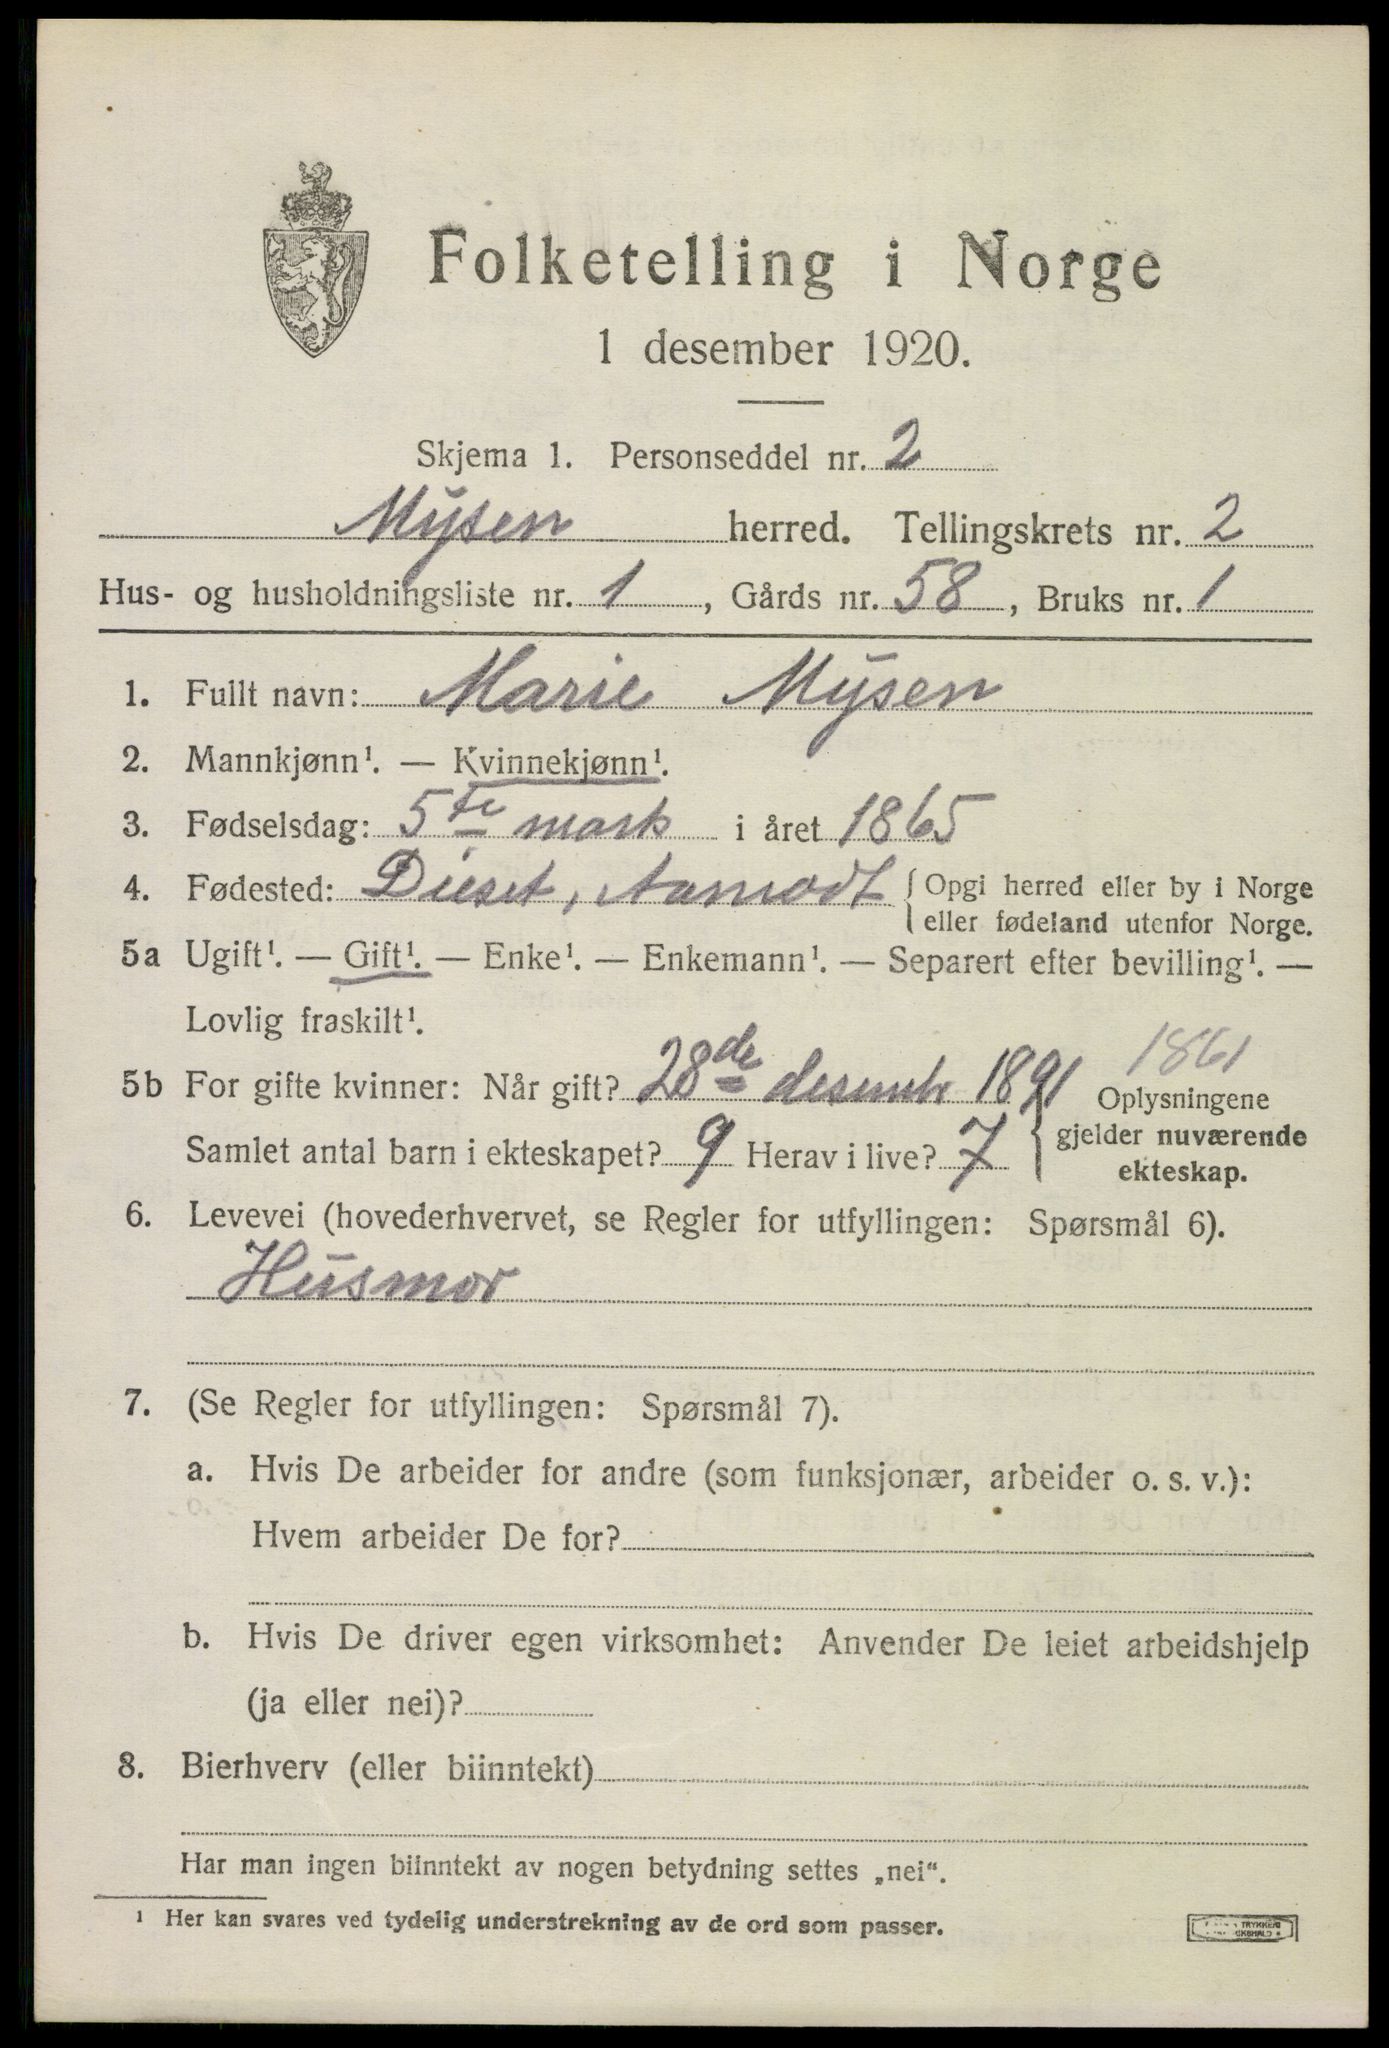 Folketelling i Norge
1 desember 1920.
Skjema 1. Personseddel nr. 2
Mysen herred. Tellingskrets nr. 2
Hus- og husholdningsliste nr. 1, Gårds nr. 58, Bruks nr. 1
1. Fullt navn: Marie Mysen
2. Mannkjønn¹. — Kvinnekjønn¹.
3. Fødselsdag: 5te mars i året 1865
4. Fødested: Dieset, Aamodt { Opgi herred eller by i Norge
eller fødeland utenfor Norge.
5a Ugift¹. — Gift¹. — Enke¹. — Enkemann¹. — Separert efter bevilling¹. —
Lovlig fraskilt¹.
1861
5b For gifte kvinner: Når gift? 28de desembr 1891 { Oplysningene
Samlet antal barn i ekteskapet? 9 Herav i live? 7 gjelder nuværende
ekteskap.
6. Levevei (hovederhvervet, se Regler for utfyllingen: Spørsmål 6).
Husmor
7. (Se Regler for utfyllingen: Spørsmål 7).
a. Hvis De arbeider for andre (som funksjonær, arbeider o. s. v.):
Hvem arbeider De for?
b. Hvis De driver egen virksomhet: Anvender De leiet arbeidshjelp
(ja eller nei)?
8. Bierhverv (eller biinntekt)
Har man ingen biinntekt av nogen betydning settes „nei“.
¹ Her kan svares ved tydelig understrekning av de ord som passer.